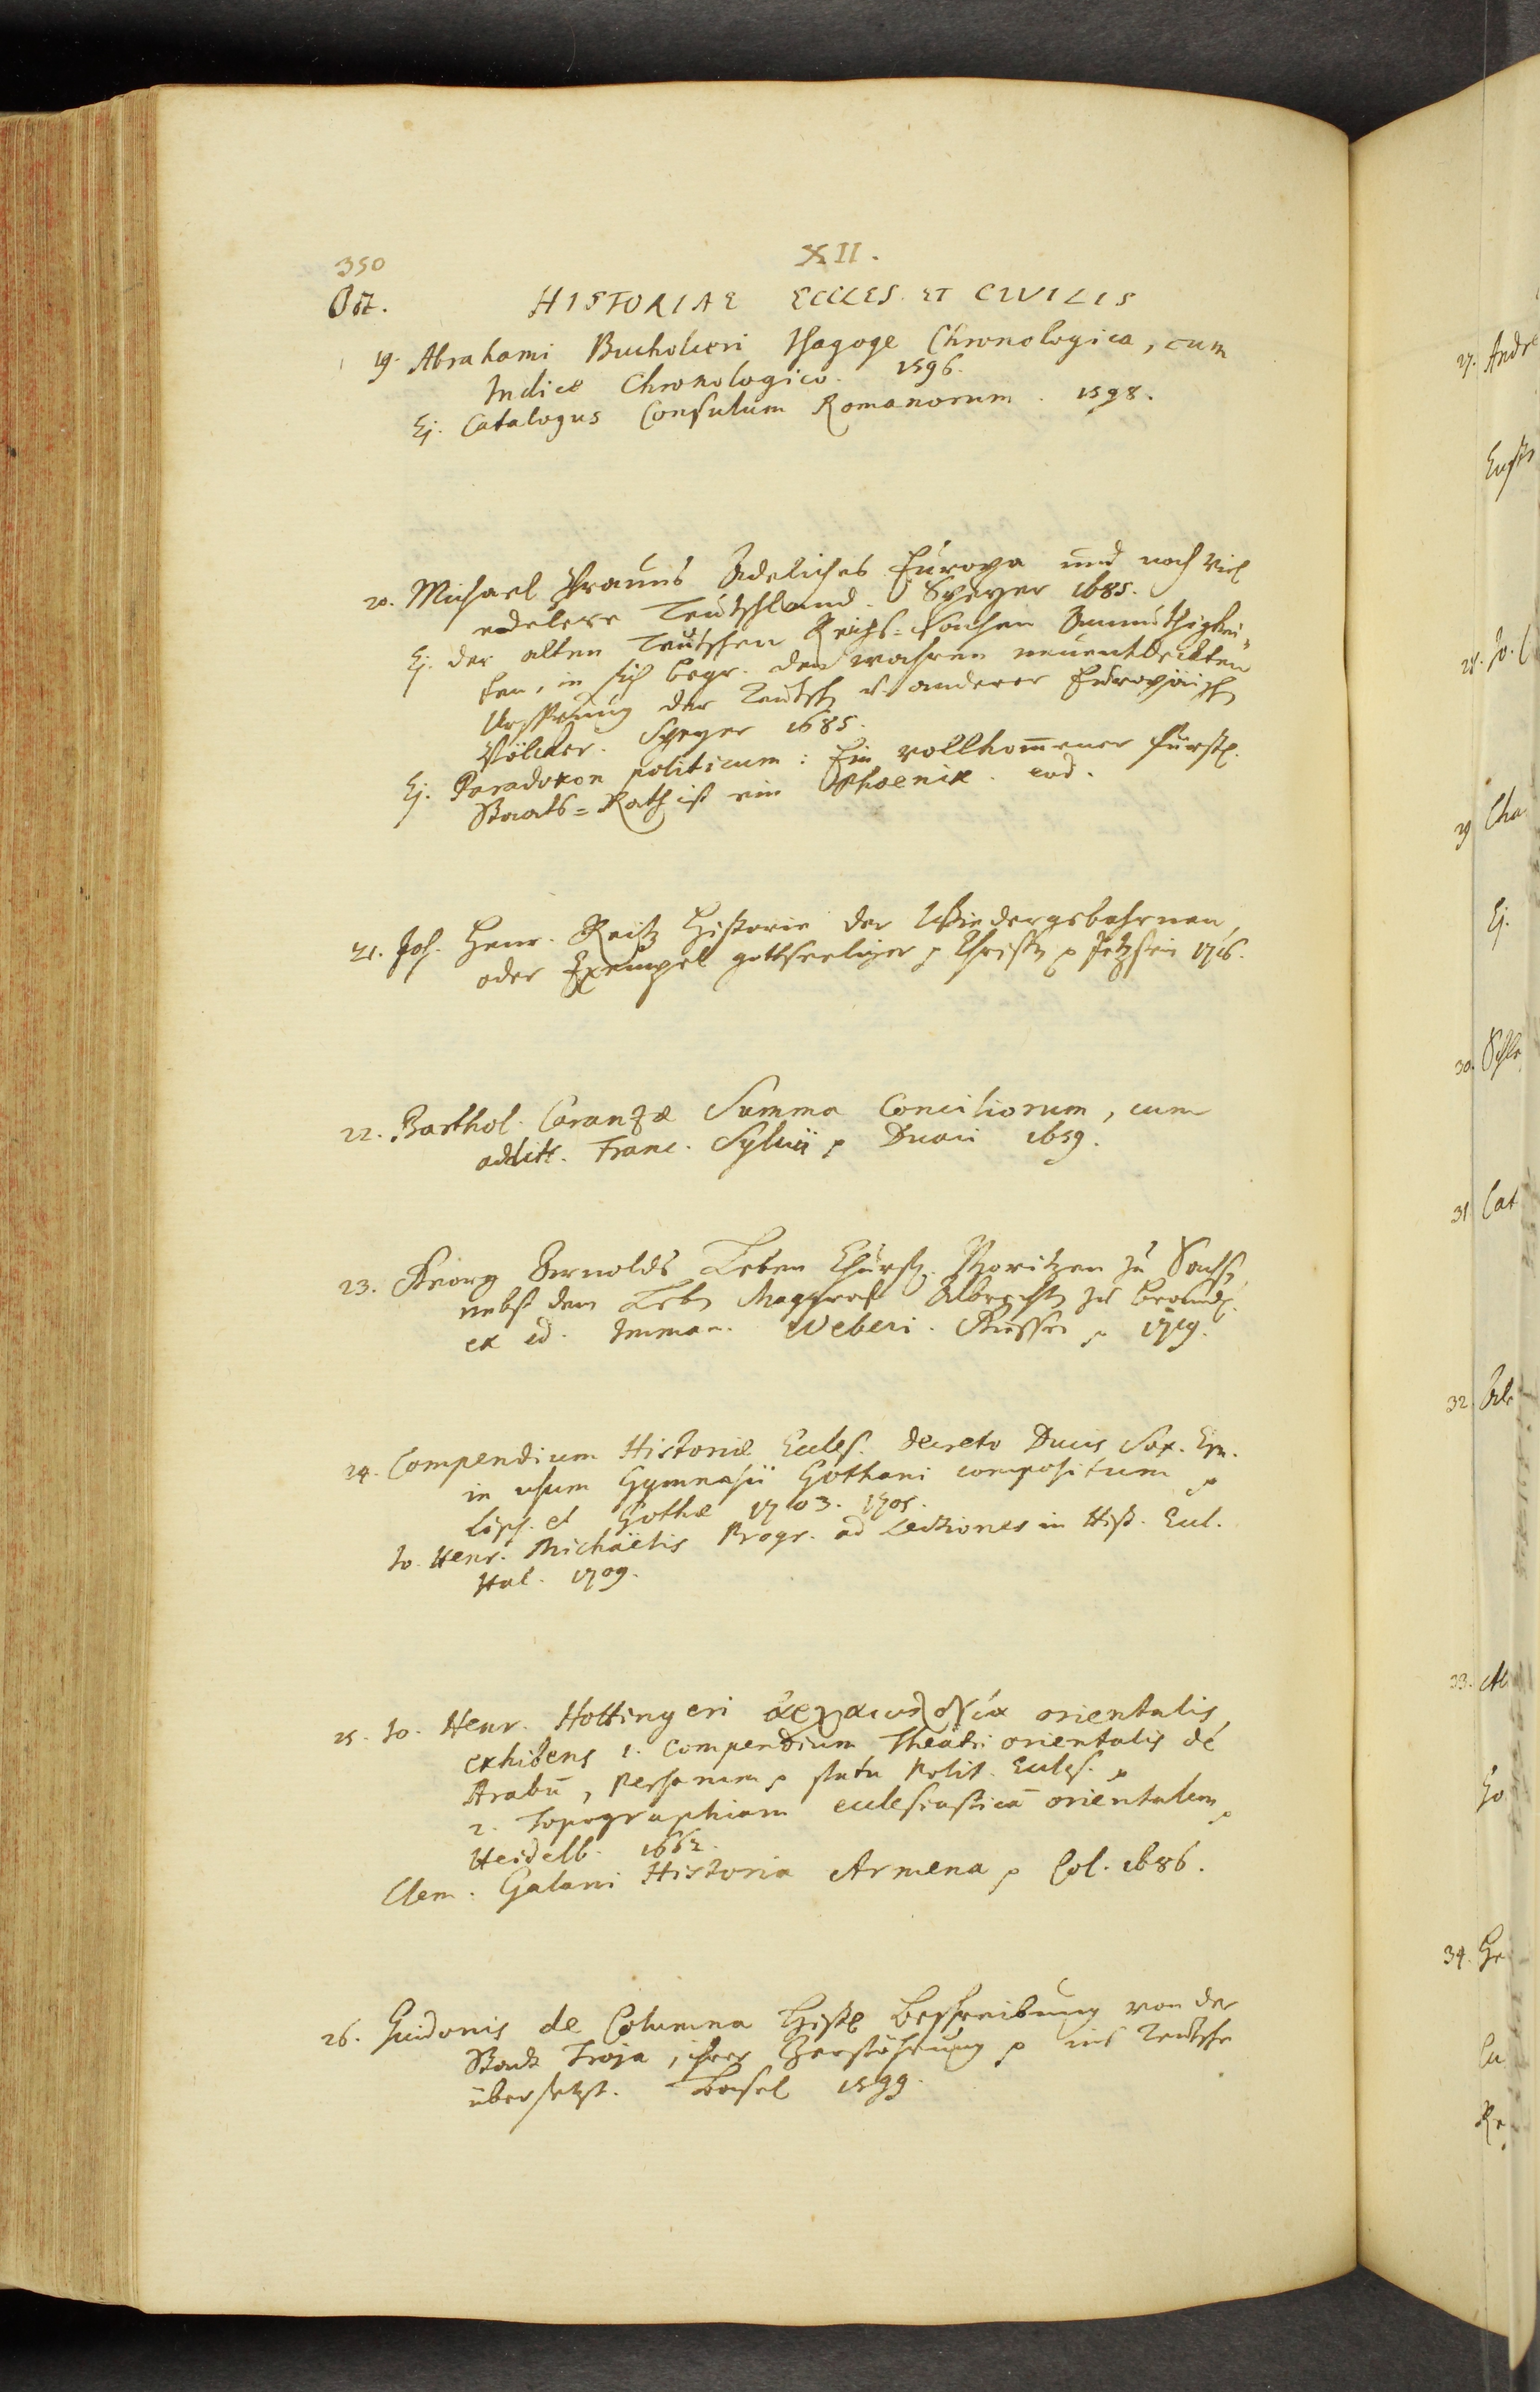 350
XII.
Oct.
HISTORIAE ECCLES. ET CIVILIS
19. Abrahami Bucholceri Isagoge Chronologica, cum
Indice Chronologico. 1596.
Ej. Catalogus Consulum Romanorum. 1598.
20. Michael Prauns Adeliches Europa und noch viel
edelere Teutschland. Speyer 1685.
Ej. der alten Teutschen Reichs-Sachen Anmuthigkei-
ten, in sich begr. den wahren neuentdeckten
Ursprung der Teutsch u. anderer Europäisch
Völcker. Speyer 1685.
Ej. Paradoxon politicum: Ein vollkom̄ener fürstl.
Staats-Rath ist ein Phoenix. eod.
21. Joh. Henr. Reitz Historie der Wiedergebohrnen,
oder Exempel gottseeliger Christ Itzstein 1716.
22. Barthol. Caranzæ Summa Conciliorum, cum
addit. Franc. Sylvii Duaci 1659.
23. Georg Arnolds Leben Churf. Moritzen zu Sachs,
nebst dem Leb Marggraf Albrecht zu Brand.
ex ed. Imman. Weberi. Giessen 1719.
24. Compendium Historiæ Eccles. decreto Ducis Sax. Ern.
in usum Gymnasii Gothani compositum
Lips. et Gothæ 1703. 1705.
Jo. Henr. Michaëlis Progr. ad Lectiones in Hist. Eccl.
Hal. 1709.
25. Jo. Henr. Hottingeri ἀρχαιολογία orientalis,
exhibens 1. Compendium Theatri orientalis de
Arabū, Persarum statu Polit. Eccles.
2. Topographiam ecclesiasticā orientalem
Heidelb. 1662.
Clem. Galani Historia Armena Col. 1686.
26. Guidonis de Columna Hist. Beschreibung von der
Stadt Troja, ihrer Zerstöhrung ins Teutsche
übersetzt. Basel 1599.
27. Andre
28. Jo.
29 Cha
Ej.
30.
31 Cat
32.
33.
34.